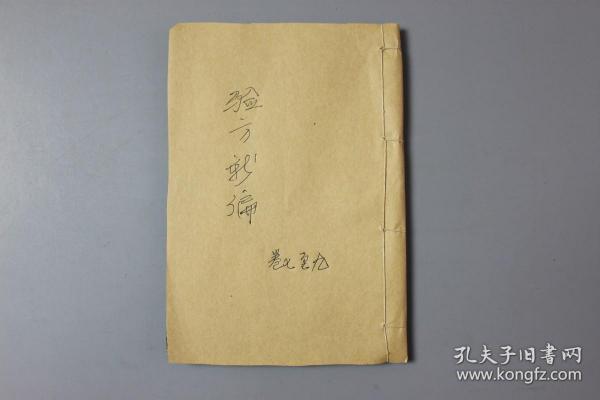 验方新编
卷七至九
孔夫子旧書网
www.kongfz.com